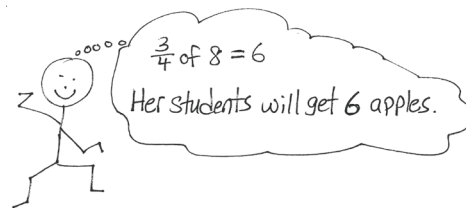 3/4 of 8 = 6
Her students will get 6 apples.